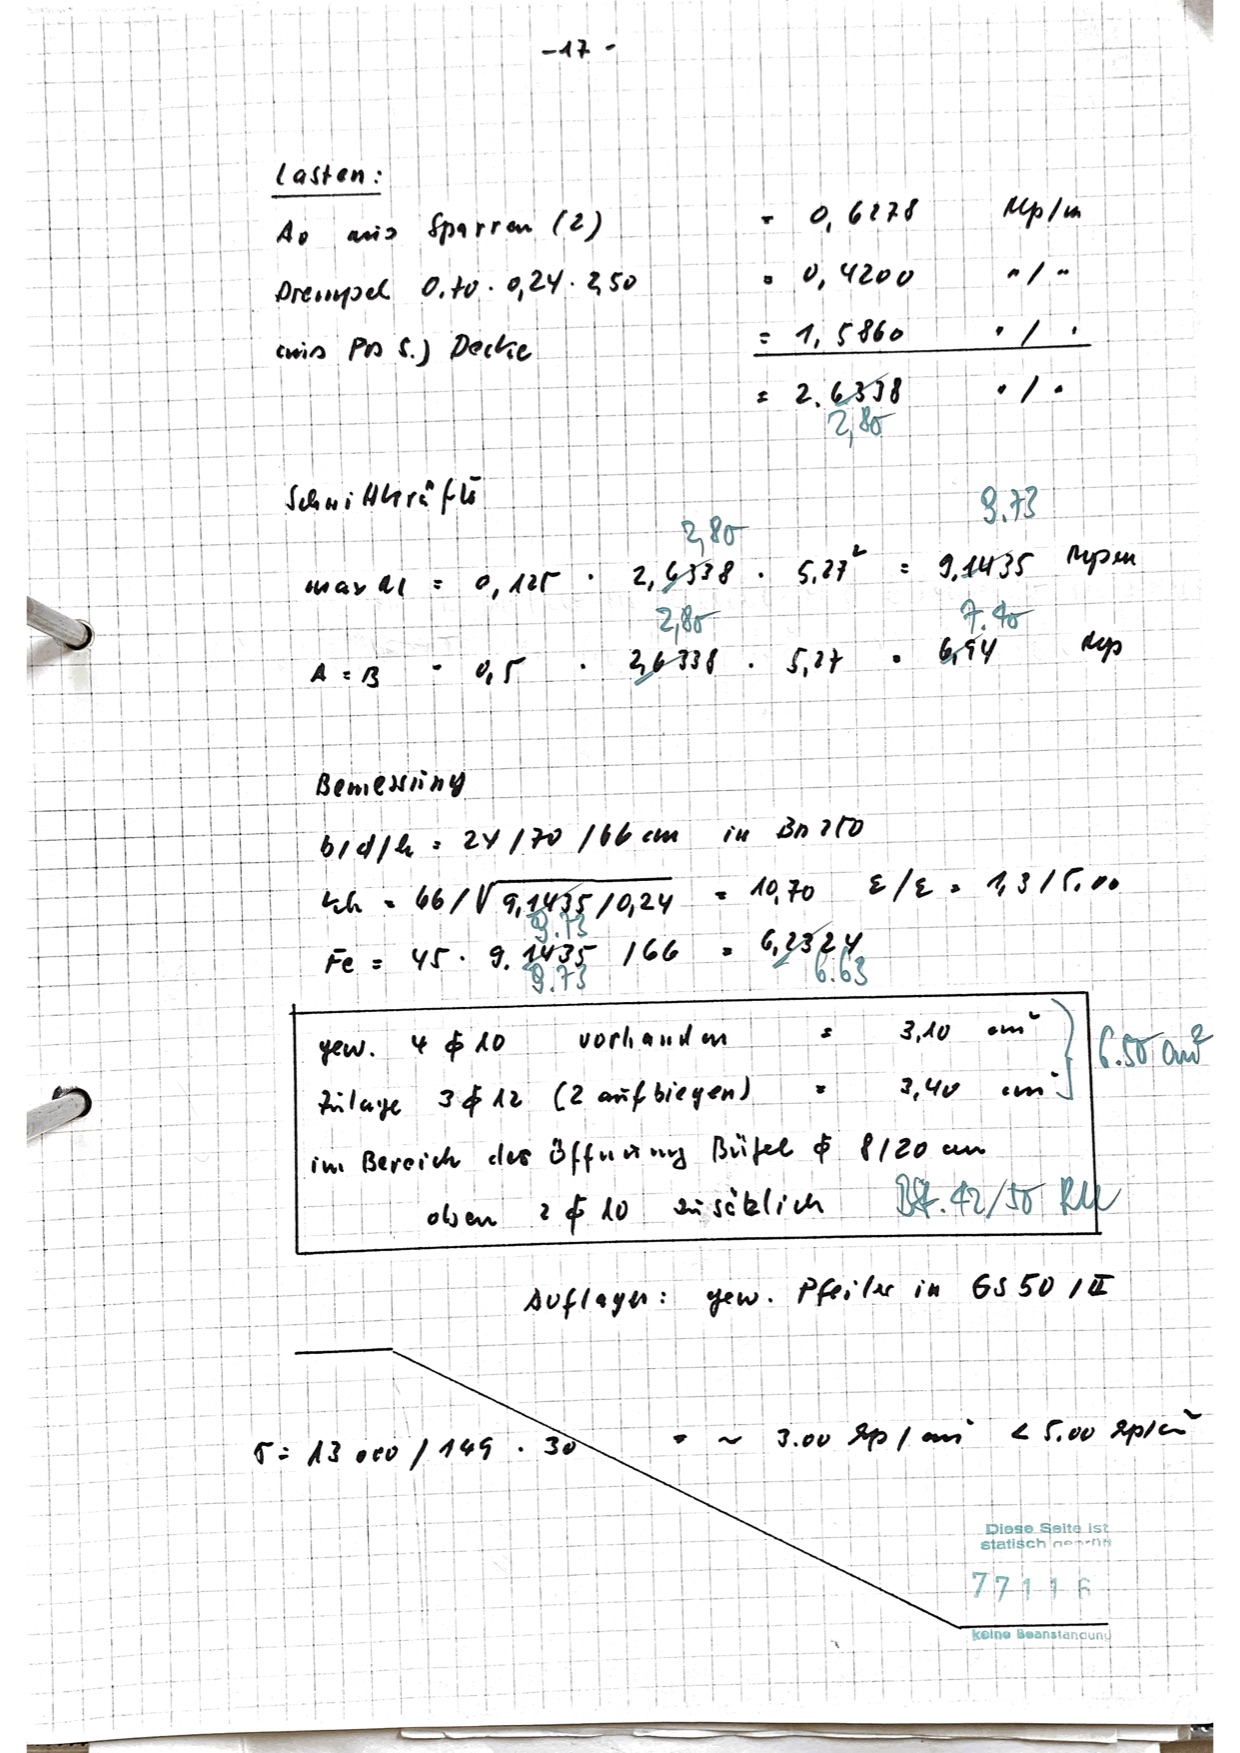 -17-
Lasten:
Ao aus Sparren (2) = 0,6278 Mp/m
Drempel 0.70 · 0,24 · 2,50 = 0,4200 " / "
aus Pos 5.) Decke = 1,5860 " / "
= 2.6338 " / "
2,80
Schnittkräfte
9.73
2,80
max M = 0,125 · 2,6338 · 5,27² = 9,1435 Mpm
2,80 7.40
A = B = 0,5 · 2,6338 · 5,27 = 6,94 Mp
Bemessung
b/d/h = 24/70/66 cm in Bn 250
kh = 66/√9,1435/0,24 = 10,70 ε/ε = 1,3/5.00
9.73
Fe = 45 · 9.1435 /66 = 6,2324
9.73 6.63
gew. 4 ϕ 10 vorhanden = 3,10 cm²
6.50 cm²
Zulage 3 ϕ 12 (2 aufbiegen) = 3,40 cm²
im Bereich der Öffnung Bügel ϕ 8/20 cm
oben 2 ϕ 10 zusätzlich BSt. 42/50 RU
Auflager: gew. Pfeiler in GS 50 / II
σ = 13 000 / 149 · 30 = ~ 3.00 kp/cm² < 5.00 kp/cm²
Diese Seite ist
statisch geprüft
77116
keine Beanstandung